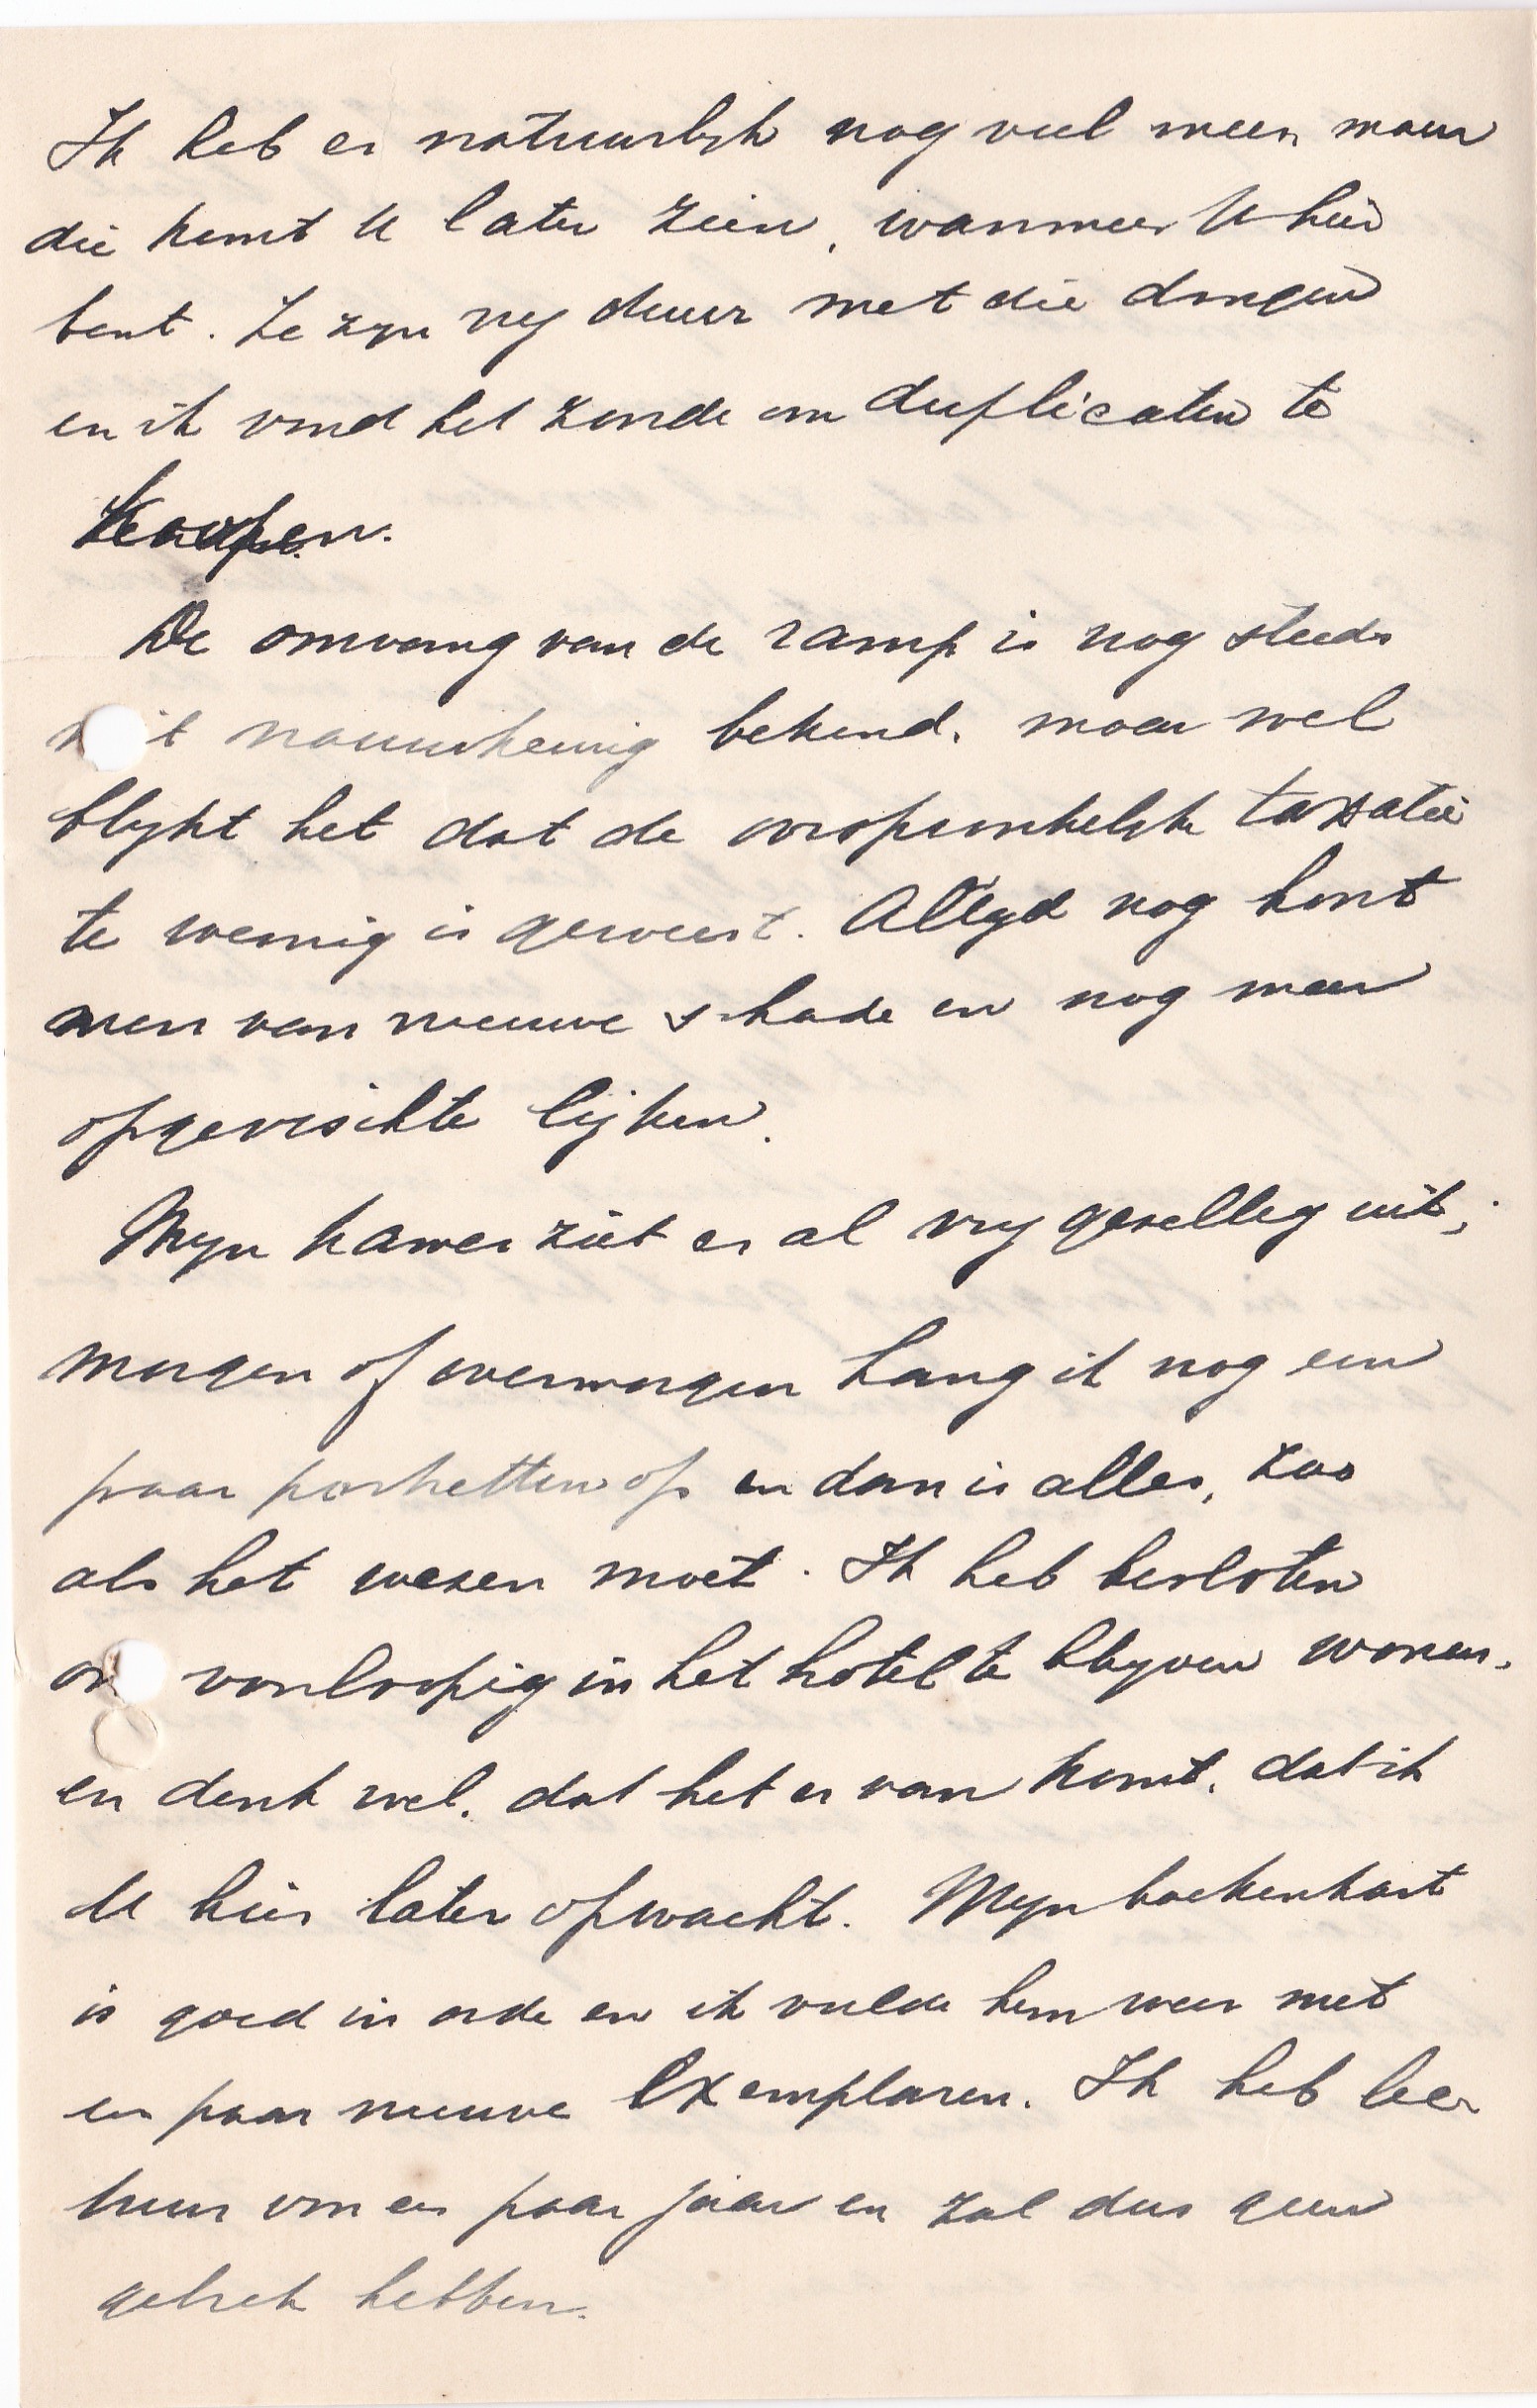 Ik heb er natuurlijk nog veel meer, maar
die komt U later zien, wanneer U hier
bent. Ze zijn vrij duur met die dingen
en ik vind het zonde om duplicaten te
koopen.
De omvang van de ramp is nog steeds
niet nauwkeurig bekend, maar wel
blijkt het dat de oorspronkelijke taxatie
te weinig is geweest. Altijd nog hoort
men van nieuwe schade en nog meer
opgevischte lijken.
Mijn kamer ziet er al vrij gezellig uit;
morgen of overmorgen hang ik nog een
paar portretten op en dan is alles, zoo
als het wezen moet. Ik heb besloten
om voorloopig in het hotel te blijven wonen,
en denk wel, dat het er van komt, dat ik
U hier later opwacht. Mijn boekenkast
is goed in orde en ik vulde hem weer met
een paar nieuwe Exemplaren. Ik heb lec-
tuur voor een paar jaar en zal dus geen
gebrek hebben.